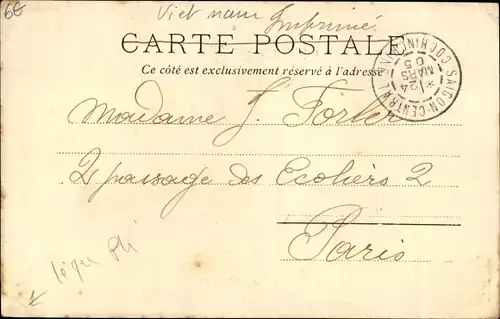 6€
Viet nam Imprimé
CARTE POSTALE
Ce côté est exclusivement réservé à l'adresse
SAIGON-CENTRAL COCHINCHINE
* 24 MARS 05
Madame J. Förter
2 passage des Ecoliers 2
Paris
légér pli